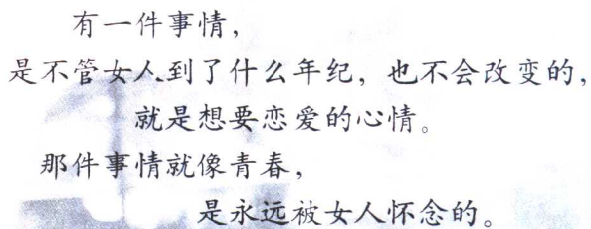 有一件事情，
是不管女人到了什么年纪，也不会改变的，
就是想要恋爱的心情。
那件事情就像青春，
是永远被女人怀念的。